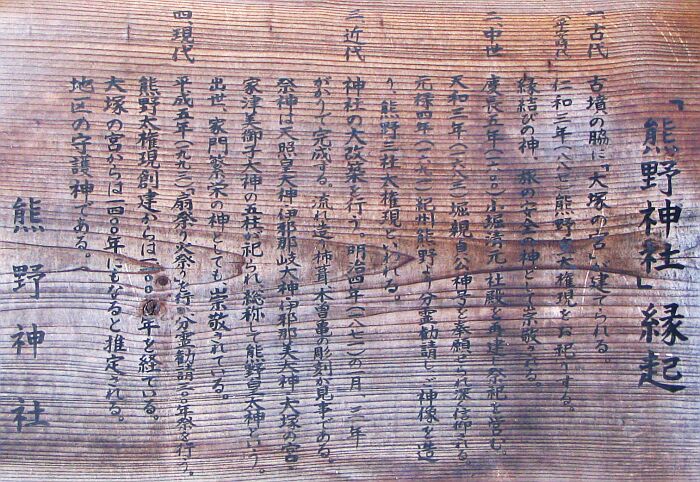 「熊野神社」縁起
一、古代 古墳の脇に「大塚の宮」が建てられる。
(平安時代) 仁和三年(八八七)熊野 大権現をお祀りする。
縁結びの神、旅の安全の神として崇敬される。
二、中世 慶長五年(一六〇〇)小堀清元 社殿を再建し祭祀を営む。
天和三年(一六八三)堀親貞公 神 を奉願せられ深く信仰される。
元禄四年(一六九一)紀州熊野より分霊勧請し、ご神像を造
り、熊野三社大権現といわれる。
三、近代 神社の大改築を行う。明治四年(一八七一)の一月、三年
がかりで完成する。流れ造り、柿葺、木曽亀の彫刻が見事である。
祭神は天照皇大神・伊邪那岐大神・伊邪那美大神・大塚の宮・
家津美御子大神の五柱が祀られ総称して熊野皇大神という。
出世、家門繁栄の神としても崇敬されている。
四、現代 平成五年(一九九三)「扇祭り・火祭り」を行い分霊勧請三〇〇年祭を行う。
熊野大権現創建からは一一〇〇年を経ている。
大塚の宮からは一四〇〇年にもなると推定される。
地区の守護神である。
熊野神社